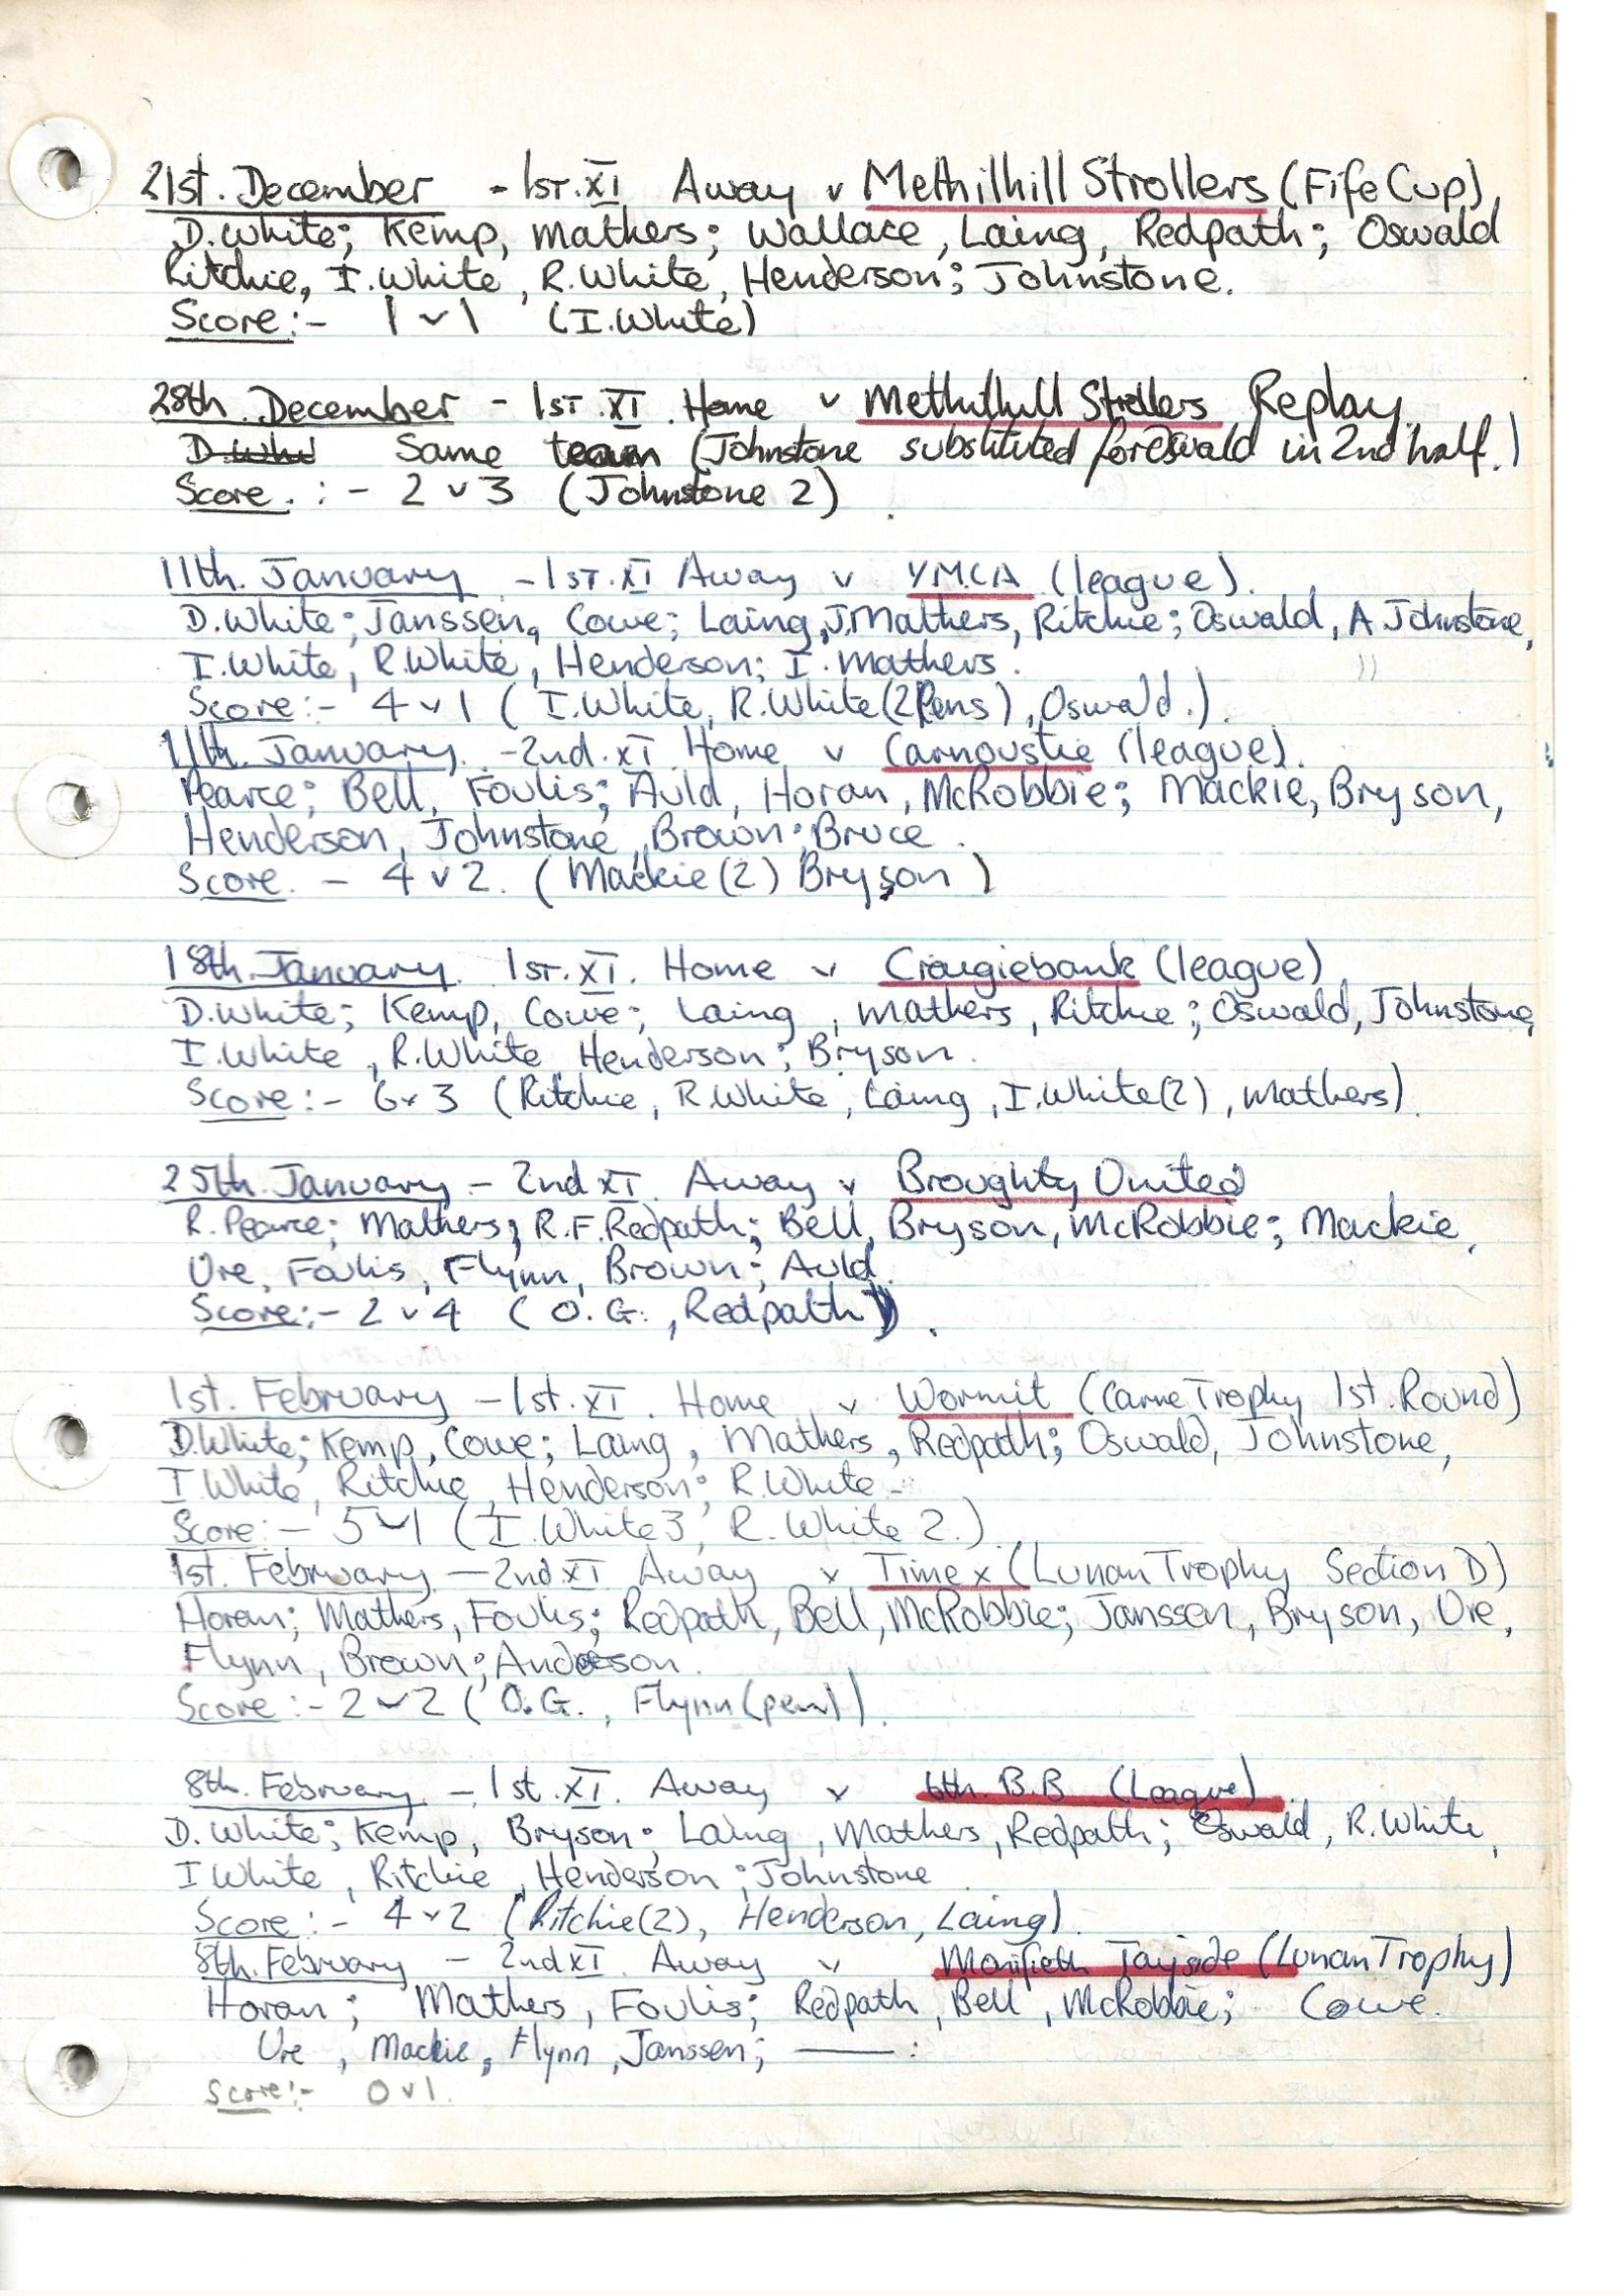 21st. December - 1ST. XI Away v Methilhill Strollers (Fife Cup),
D. White; Kemp, Mathers; Wallace, Laing, Redpath; Oswald
Ritchie, I. White, R. White, Henderson; Johnstone.
Score:- 1 v 1 (I. White)
28th. December - 1ST. XI Home v Methilhill Strollers Replay.
D. Whi Same team (Johnstone substituted for Oswald in 2nd half.)
Score. :- 2 v 3 (Johnstone 2)
11th. January - 1ST. XI Away v Y.M.C.A (league).
D. White; Janssen, Cowe; Laing, J. Mathers, Ritchie; Oswald, A Johnstone,
I. White, R. White, Henderson; I. Mathers.
Score:- 4 v 1 (I. White, R. White (2 Pens), Oswald.).
11th. January. - 2nd. XI Home v Carnoustie (league).
Pearce; Bell, Foulis; Auld, Horan, McRobbie; Mackie, Bryson,
Henderson, Johnstone, Brown; Bruce.
Score. - 4 v 2. (Mackie (2) Bryson)
18th. January. 1ST. XI. Home v Craigiebank (league)
D. White; Kemp, Cowe; Laing, Mathers, Ritchie; Oswald, Johnstone,
I. White, R. White, Henderson; Bryson.
Score:- 6 v 3 (Ritchie, R. White, Laing, I. White (2), Mathers).
25th. January - 2nd XI. Away v Broughty United
R. Pearce; Mathers, R. F. Redpath; Bell, Bryson, McRobbie; Mackie,
Ure, Foulis, Flynn, Brown; Auld.
Score:- 2 v 4 (O.G., Redpath).
1st. February - 1st. XI. Home v Wormit (Carne Trophy 1st. Round)
D. White; Kemp, Cowe; Laing, Mathers, Redpath; Oswald, Johnstone,
I. White, Ritchie, Henderson; R. White.
Score:- 5 v 1 (I. White 3, R. White 2.)
1st. February - 2nd XI Away v Timex (Lunan Trophy Section D)
Horan; Mathers, Foulis; Redpath, Bell, McRobbie; Janssen, Bryson, Ure,
Flynn, Brown; Anderson.
Score:- 2 v 2 (O.G., Flynn (pen)).
8th. February - 1st. XI. Away v 6th. B.B (League)
D. White; Kemp, Bryson; Laing, Mathers, Redpath; Oswald, R. White,
I White, Ritchie, Henderson; Johnstone
Score:- 4 v 2 (Ritchie (2), Henderson, Laing).
8th. February - 2nd XI. Away v Monifieth Tayside (Lunan Trophy)
Horan; Mathers, Foulis; Redpath, Bell, McRobbie; Cowe.
Ure, Mackie, Flynn, Janssen; ——— :
Score:- 0 v 1.